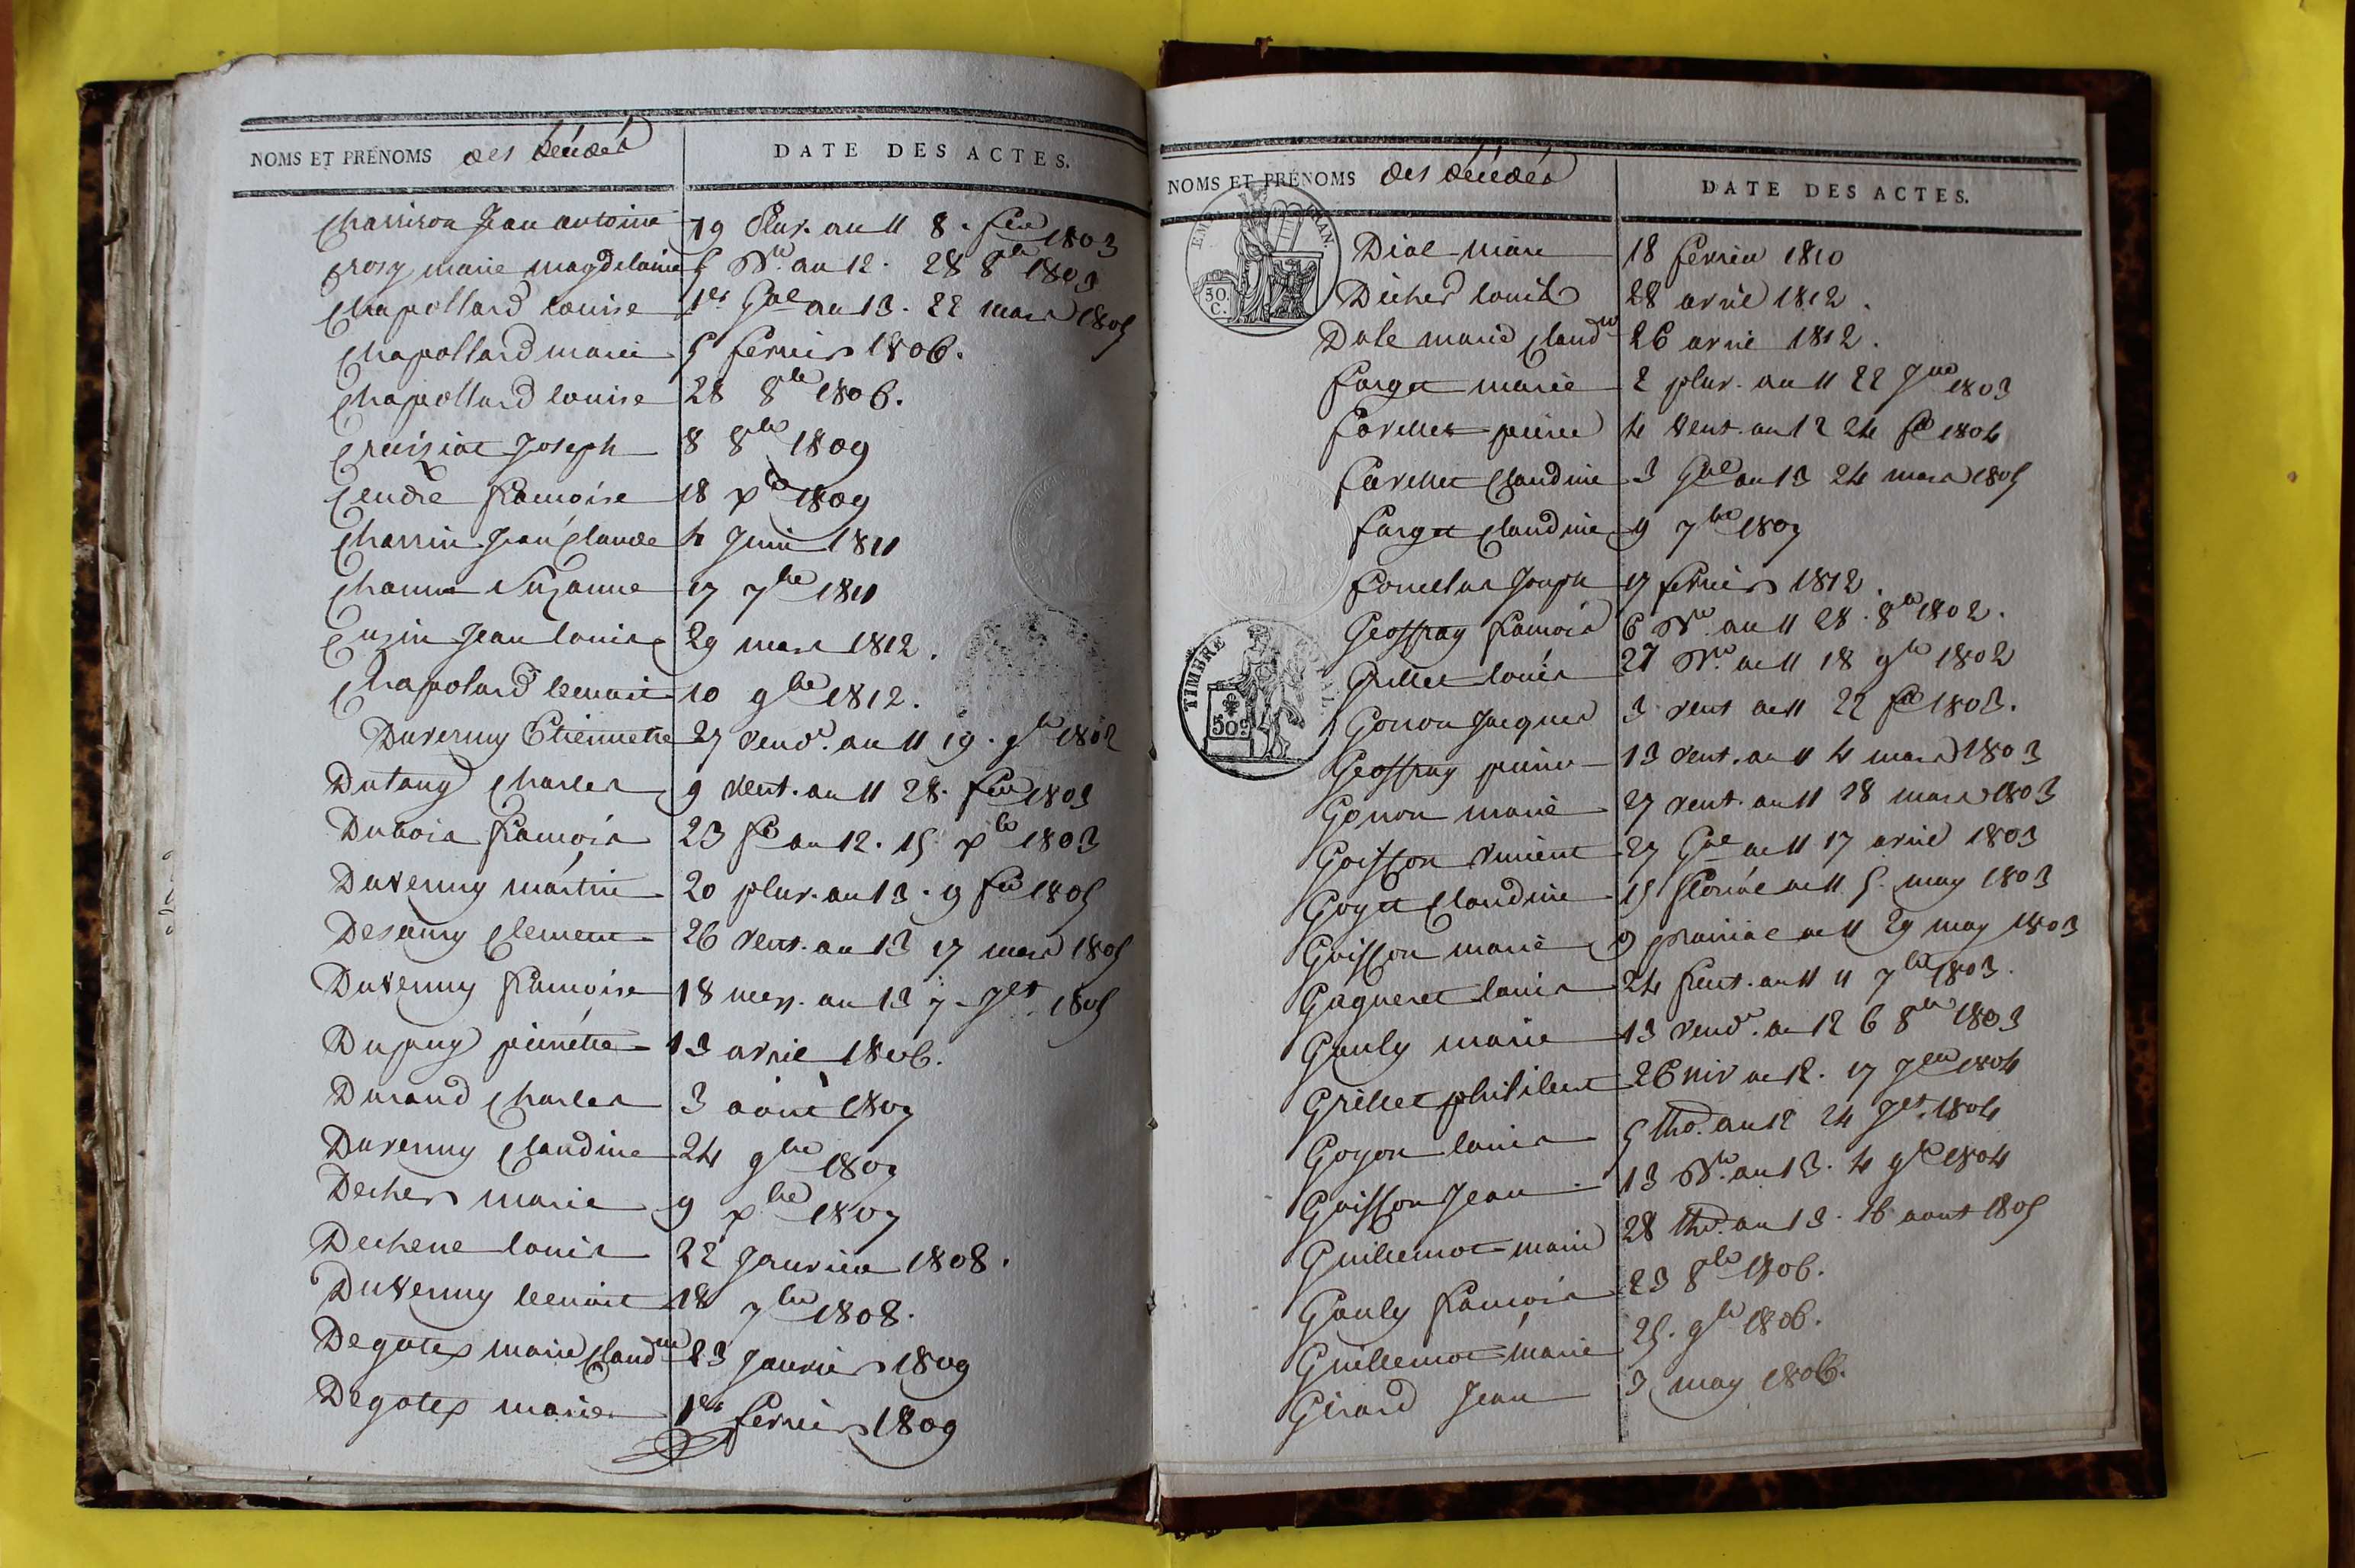 NOMS ET PRÉNOMS des décédés DATE DES ACTES.
Charriron Jean antoine 19 Pluv. an 11 8. fer 1803
Crozy marie magdelaine 5 Bre. an 12. 28 8bre 1803
Chapollard Louise 1er Gal an 13. 22 mars 1805
Chapollard marie 5 fevrier 1806.
Chapollard Louise 28 8bre 1806.
Creuziat Joseph 8 8bre 1809
Cendre francoise 18 xbre 1809
Charrin Jean Claude 4 Juin 1811
Suzanne 17 7bre 1811
Cuzin Jean Louis 29 mars 1812.
Chapolard benoit 10 9bre 1812.
Duvernay Etiennette 27 vendre. an 11 19. 9bre 1802
Dutang Charles 9 vent. an 11 28. fer 1803
Dubois francois 23 fre an 12. 15 xbre 1803
Duvernay martin 20 pluv. an 13. 9 fer 1805
Clement 26 vent. an 13 17 mars 1805
Duvernay francoise 18 mess. an 13 7. Jet 1805
Dupuy pierrette 13 avril 1806.
Durand Charles 3 aout 1807
Duvernay Claudine 24 9bre 1807
Decher marie 9 xbre 1807
Dechene Louis 22 Janvier 1808.
Duvernay benoit 18 7bre 1808.
Degotex marie Claudne 23 Janvier 1809
Degotex marie 1er fevrier 1809
NOMS ET PRÉNOMS des décédés DATE DES ACTES.
EMP. FRAN.
30. C.
Dial marie 18 fevrier 1810
Decher Louis 28 avril 1812.
Dale marie Claudne 26 avril 1812.
farget marie 2 pluv. an 11 22 Jer 1803
favillet pierre 4 vent. an 12 24 fer 1804
favillet Claudine 3 Gal an 13 24 mars 1805
farget Claudine 9 7bre 1807
Joseph 17 fevrier 1812.
Geoffray francois 6 Bre an 11 28. 8bre 1802.
Grillet Louis 27 Bre. an 11 18 9bre 1802
TIMBRE ROYAL
50c
Gonon Jacques 3 vent an 11 22 fer 1803.
Geoffray pierre 13 vent. an 11 4 mars 1803
Gonon marie 27 vent. an 11 18 mars 1803
Goisson vincent 27 Gal an 11 17 avril 1803
Goyet Claudine 15 floréal an 11 5. may 1803
Goisson marie 9 prairial an 11 29 may 1803
Gagneret Louis 24 fruct. an 11 11 7bre 1803.
Gauly marie 13 vendre. an 12 6 8bre 1803
Grillet philibert 26 niv an 12. 17 Jer 1804
Goyon Louis 5 thor. an 12 24 Jet. 1804
Goisson Jean 13 Bre. an 13. 4 9bre 1804
Guillemot marie 28 thor. an 13. 16 aout 1805
Gauly francois 23 8bre 1806.
Guillemot marie 25. 9bre 1806.
Girard Jean 3 may 1806.